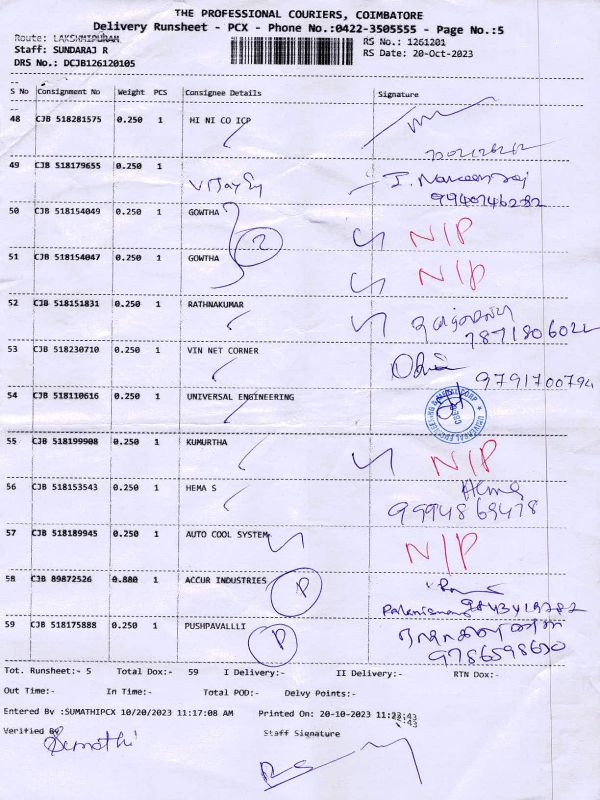 THE PROFESSIONAL COURIERS, COIMBATORE
Delivery Runsheet - PCX - Phone No.:0422-3505555 - Page No.:5
Route: LAKSHMIPURAM
RS No.: 1261201
Staff: SUNDARAJ R
RS Date: 20-Oct-2023
DRS No.: DCJB126120105
S No Consignment No Weight PCS Consignee Details Signature
48 CJB 518281575 0.250 1 HI NI CO ICP
49 CJB 518179655 0.250 1
9940746282
50 CJB 518154049 0.250 1 GOWTHA N/P
2
51 CJB 518154047 0.250 1 GOWTHA N/P
52 CJB 518151831 0.250 1 RATHNAKUMAR
7871806022
53 CJB 518230710 0.250 1 VIN NET CORNER
9791700794
54 CJB 518110616 0.250 1 UNIVERSAL ENGINEERING
55 CJB 518199908 0.250 1 KUMURTHA N/P
56 CJB 518153543 0.250 1 HEMA S Hema
9994869478
57 CJB 518189945 0.250 1 AUTO COOL SYSTEM N/P
58 CJB 89872526 0.880 1 ACCUR INDUSTRIES P
59 CJB 518175888 0.250 1 PUSHPAVALLLI P
Tot. Runsheet:- 5 Total Dox:- 59 I Delivery:- II Delivery:- RTN Dox:-
Out Time:- In Time:- Total POD:- Delvy Points:-
Entered By :SUMATHIPCX 10/20/2023 11:17:08 AM Printed On: 20-10-2023
Verified By Staff Signature
Sumathi